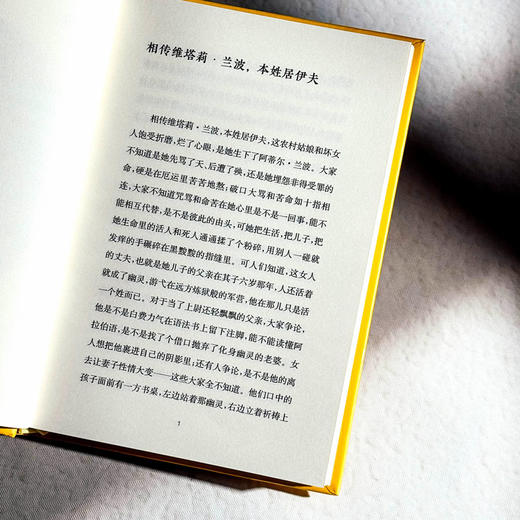 相传维塔莉·兰波，本姓居伊夫
相传维塔莉·兰波，本姓居伊夫，这农村姑娘和坏女
人饱受折磨，烂了心眼，是她生下了阿蒂尔·兰波。大家
不知道是她先骂了天、后遭了殃，还是她埋怨非得受罪的
命，硬是在厄运里苦苦地熬；破口大骂和苦命如十指相
连，大家不知道咒骂和命苦在她心里是不是一回事，能不
能相互代替，是不是彼此的由头，可她把生活，把儿子，把
她生命里的活人和死人通通揉了个粉碎，用别人一碰就
发痒的手碾碎在黑黢黢的指缝里。可人们知道，这女人
的丈夫，也就是她儿子的父亲在其子六岁那年，人还活着
就成了幽灵，游弋在远方炼狱般的军营，他在那儿只是活
一个姓而已。对于当了上尉还轻飘飘的父亲，大家争论，
他是不是白费力气在语法书上留下注脚，能不能读懂阿
拉伯语，是不是找了个借口抛弃了化身幽灵的老婆。女
人想把他裹进自己的阴影里；还有人争论，是不是他的离
去让妻子性情大变——这些大家全不知道。他们口中的
孩子面前有一方书桌，左边站着那幽灵，右边立着祈祷上
1